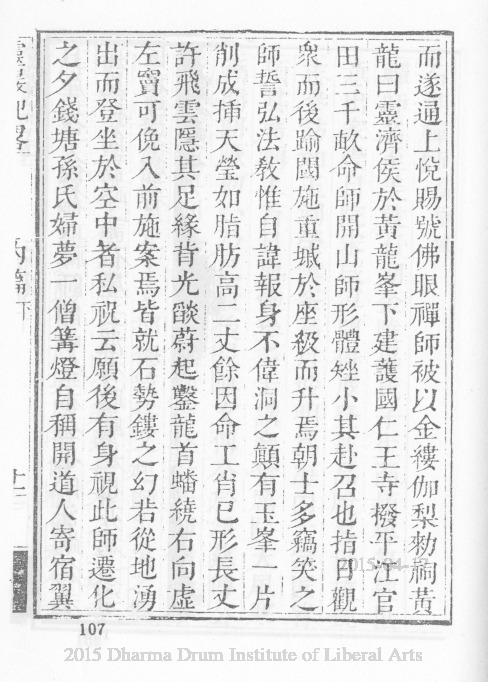 而遂通上悅賜號佛眼禪師被以金縷伽梨勑祠黃
龍曰靈濟侯於黃龍峯下建護國仁王寺撥平江官
田三千畝命師開山師形體矬小其赴召也揞日觀
衆而後踰閾施重城於座級而升焉朝士多竊笑之
師誓弘法教惟自諱報身不偉洞之顛有玉峯一片
削成揷天瑩如脂肪高二丈餘因命工肖已形長丈
許飛雲隱其足緣背光燄蔚起鑿龍首蟠繞右向虛
左竇可俛入前施案焉皆就石勢鏤之幻若從地湧
出而登坐於空中者私祝云願後有身視此師遷化
之夕錢塘孫氏婦夢一僧篝燈自稱開道人寄宿翼
內篇下
十一
107
2015 Dharma Drum Institute of Liberal Arts